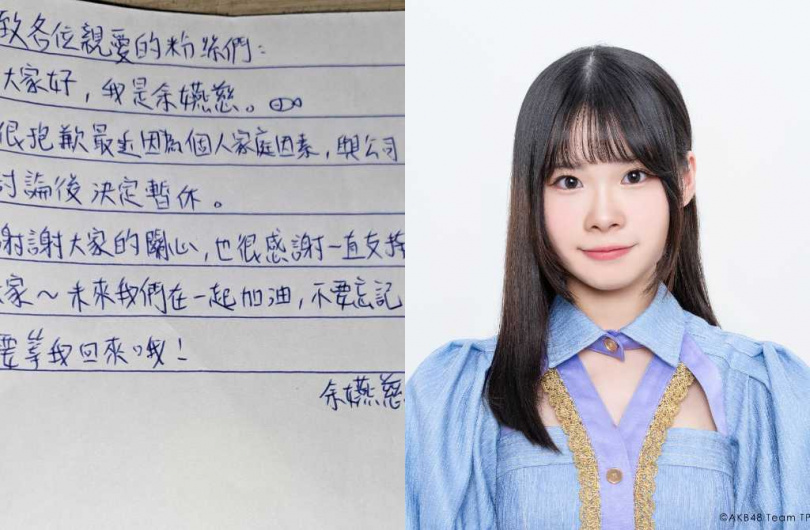 致各位親愛的粉絲們：
大家好，我是余嬿慈。
很抱歉最近因為個人家庭因素，與公司
討論後決定暫休。
謝謝大家的關心，也很感謝一直支持
大家～未來我們在一起加油，不要忘記
要等我回來哦！
余嬿慈
©AKB48 Team TP